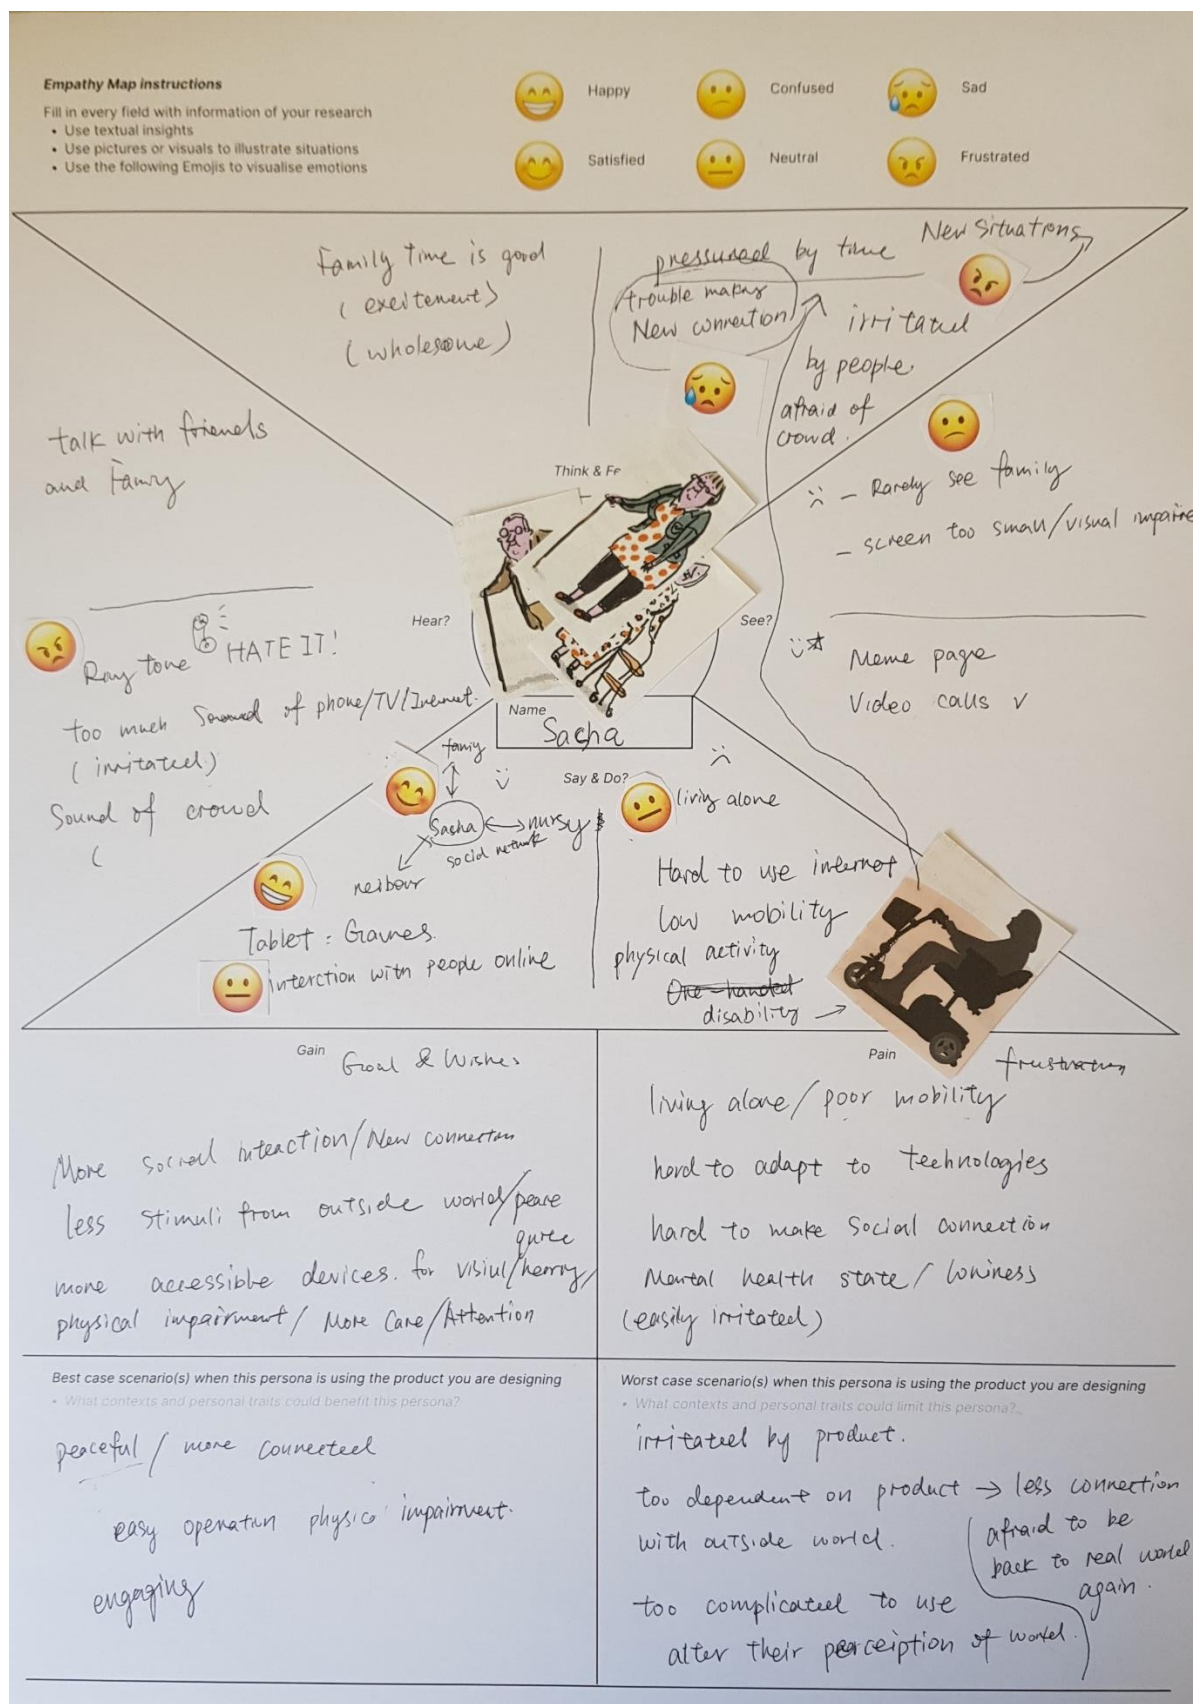 Empathy Map instructions
Fill in every field with information of your research
• Use textual insights
• Use pictures or visuals to illustrate situations
• Use the following Emojis to visualise emotions
Happy
Confused
Sad
Satisfied
Neutral
Frustrated
Family Time is good
(exeitement)
(wholesome)
pressured by time
New Situations
trouble making
New connection
irritated
by people
afraid of
crowd.
Think & Fe
talk with friends
and Famiy
Hear?
HATE IT!
tone
too much Sound of phone/TV/Inernet.
(irritated)
Sound of crowd
(
See?
- Rarely see family
- screen too small/visual impaire
Meme page
Video calls ✓
Name
Sacha
Say & Do?
famiy
Sasha
nursy
social network
neibour
Tablet : Games.
interction with people online
living alone
Hard to use internet
low mobility
physical activity
One-handed
disability
Gain
Goal & Wishes
More social inteaction/New connecton
less stimuli from outside world/peace
more accessible devices. for
physical impairment/ More Care/Attention
Pain
frustration
living alone/poor mobility
hard to adapt to technologies
hard to make Social connection
Mental health state/ loniness
(easily irritated)
Best case scenario(s) when this persona is using the product you are designing
• What contexts and personal traits could benefit this persona?
peaceful / more connected
easy operation physica impairment.
engaging
Worst case scenario(s) when this persona is using the product you are designing
• What contexts and personal traits could limit this persona?
irritated by product.
too dependent on product → less connection
with outside world.
afraid to be
back to real world
again.
too complicated to use
alter their perception of world.